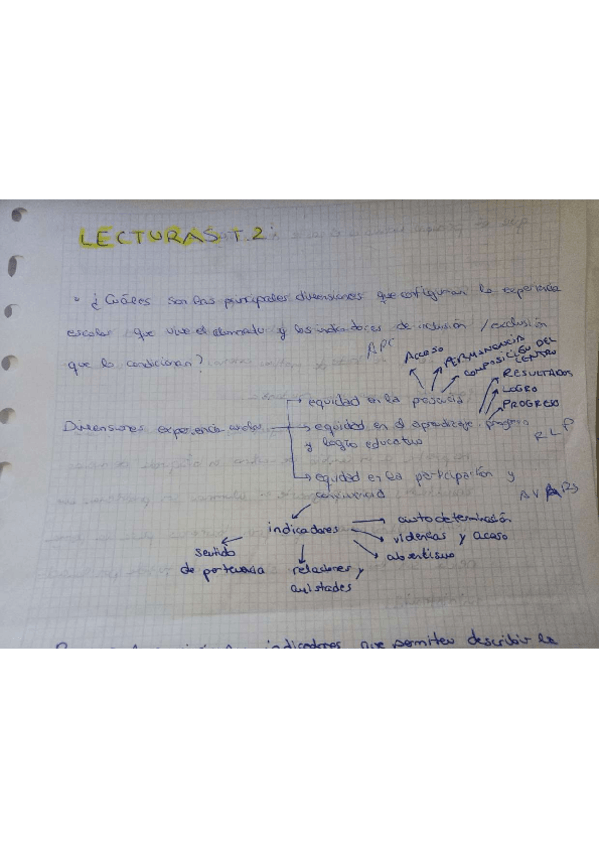 LECTURAS T.2:
• ¿Cuáles son las principales dimensiones que configuran la experiencia
escolar que vive el alumnado y los indicadores de inclusión / exclusión
que la condicionan?
APC
Acceso
PERMANENCIA
COMPOSICIÓN DEL
CENTRO
RESULTADOS
LOGRO
PROGRESO
Dimensiones experiencia escolar
equidad en la presencia
equidad en el aprendizaje, progreso
y logro educativo
RLP
equidad en la participación y
convivencia
indicadores
autodeterminación
violencias y acoso
absentismo
sentido
de pertenencia
relaciones y
amistades
indicadores que permiten describir la